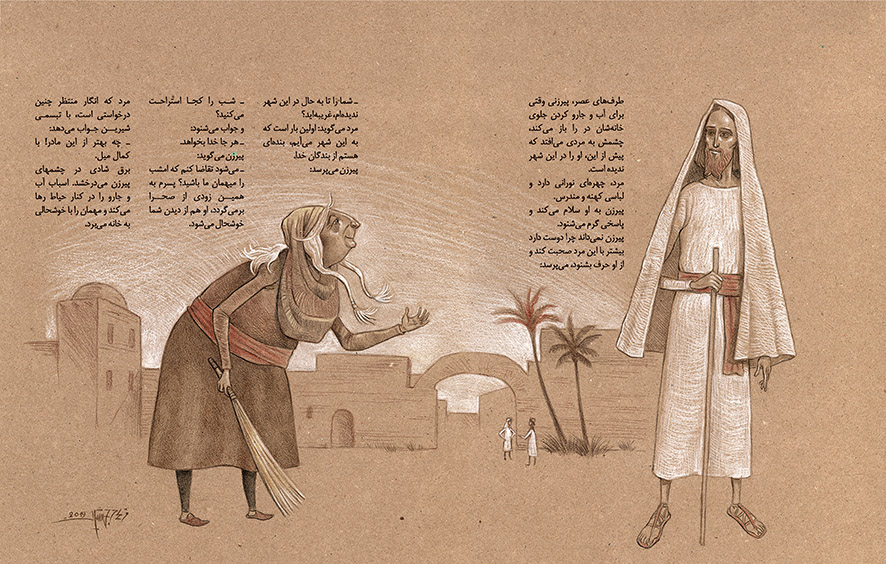 طرف‌های عصر، پیرزنی وقتی
برای آب و جارو کردن جلوی
خانه‌شان در را باز می‌کند،
چشمش به مردی می‌افتد که
پیش از این، او را در این شهر
ندیده است.
مرد، چهره‌ای نورانی دارد و
لباسی کهنه و مندرس.
پیرزن به او سلام می‌کند و
پاسخی گرم می‌شنود.
پیرزن نمی‌داند چرا دوست دارد
بیشتر با این مرد صحبت کند و
از او حرف بشنود، می‌پرسد:
ـ شما را تا به حال در این شهر
ندیده‌ام، غریبه‌اید؟
مرد می‌گوید: اولین بار است که
به این شهر می‌آیم، بنده‌ای
هستم از بندگان خدا.
پیرزن می‌پرسد:
ـ شب را کجا استراحت
می‌کنید؟
و جواب می‌شنود:
ـ هر جا خدا بخواهد.
پیرزن می‌گوید:
ـ می‌شود تقاضا کنم که امشب
را میهمان ما باشید؟ پسرم به
همین زودی از صحرا
برمی‌گردد، او هم از دیدن شما
خوشحال می‌شود.
مرد که انگار منتظر چنین
درخواستی است، با تبسمی
شیرین جواب می‌دهد:
ـ چه بهتر از این مادر! با
کمال میل.
برق شادی در چشمهای
پیرزن می‌درخشد. اسباب آب
و جارو را در کنار حیاط رها
می‌کند و مهمان را با خوشحالی
به خانه می‌برد.